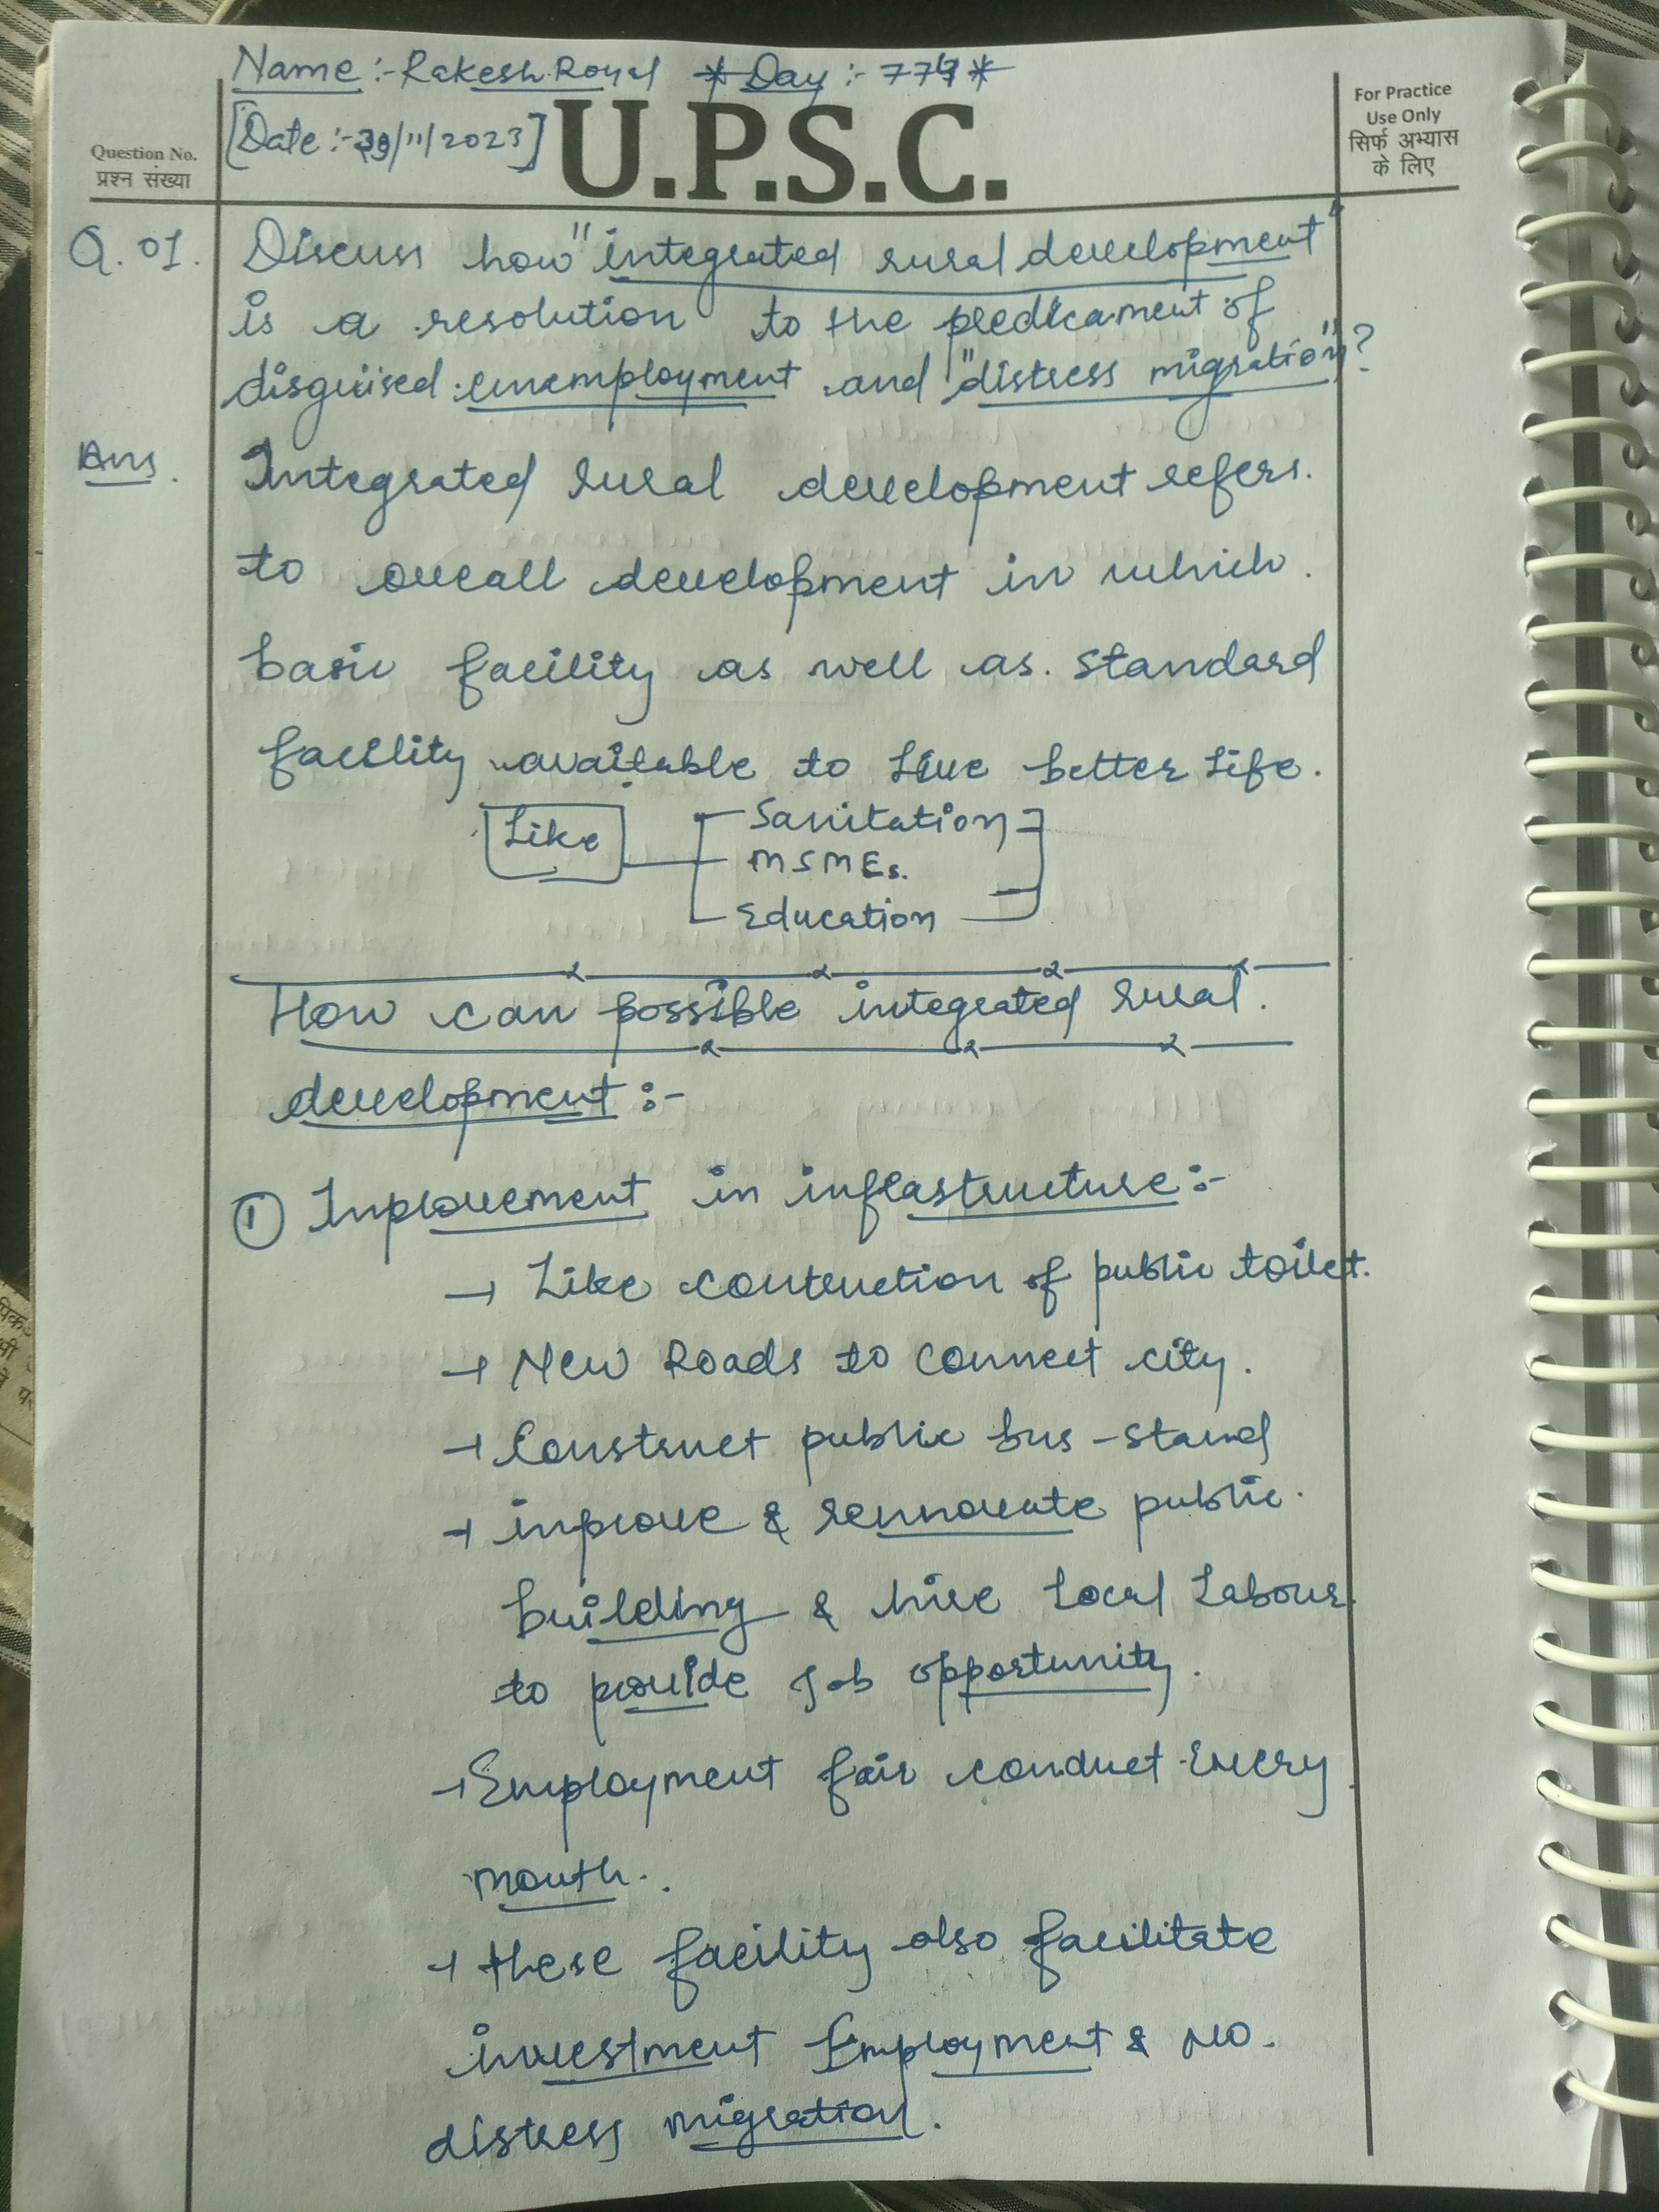 Name :- Rakesh Royal * Day :- 774 *
[Date :- 30/11/2023] U.P.S.C.
For Practice
Use Only
सिर्फ अभ्यास
के लिए
Question No.
प्रश्न संख्या
Q. 01. Discuss how "integrated rural development"
is a resolution to the predicament of
disguised unemployment and "distress migration"?
Ans. Integrated rural development refers.
to overall development in which.
basic facility as well as. standard
facility available to live better life.
Like
Sanitation
MSMEs.
Education
How can possible integrated rural.
development :-
① Inprovement in infrastructure :-
→ Like contruction of public toilet.
→ New Roads to connect city.
→ Construct public bus-stand
→ inprove & rennovate public.
building & hire local labour
to provide job opportunity.
→ Employment fair conduct every
month.
→ these facility also facilitate
investment Employment & no.
distress migration.